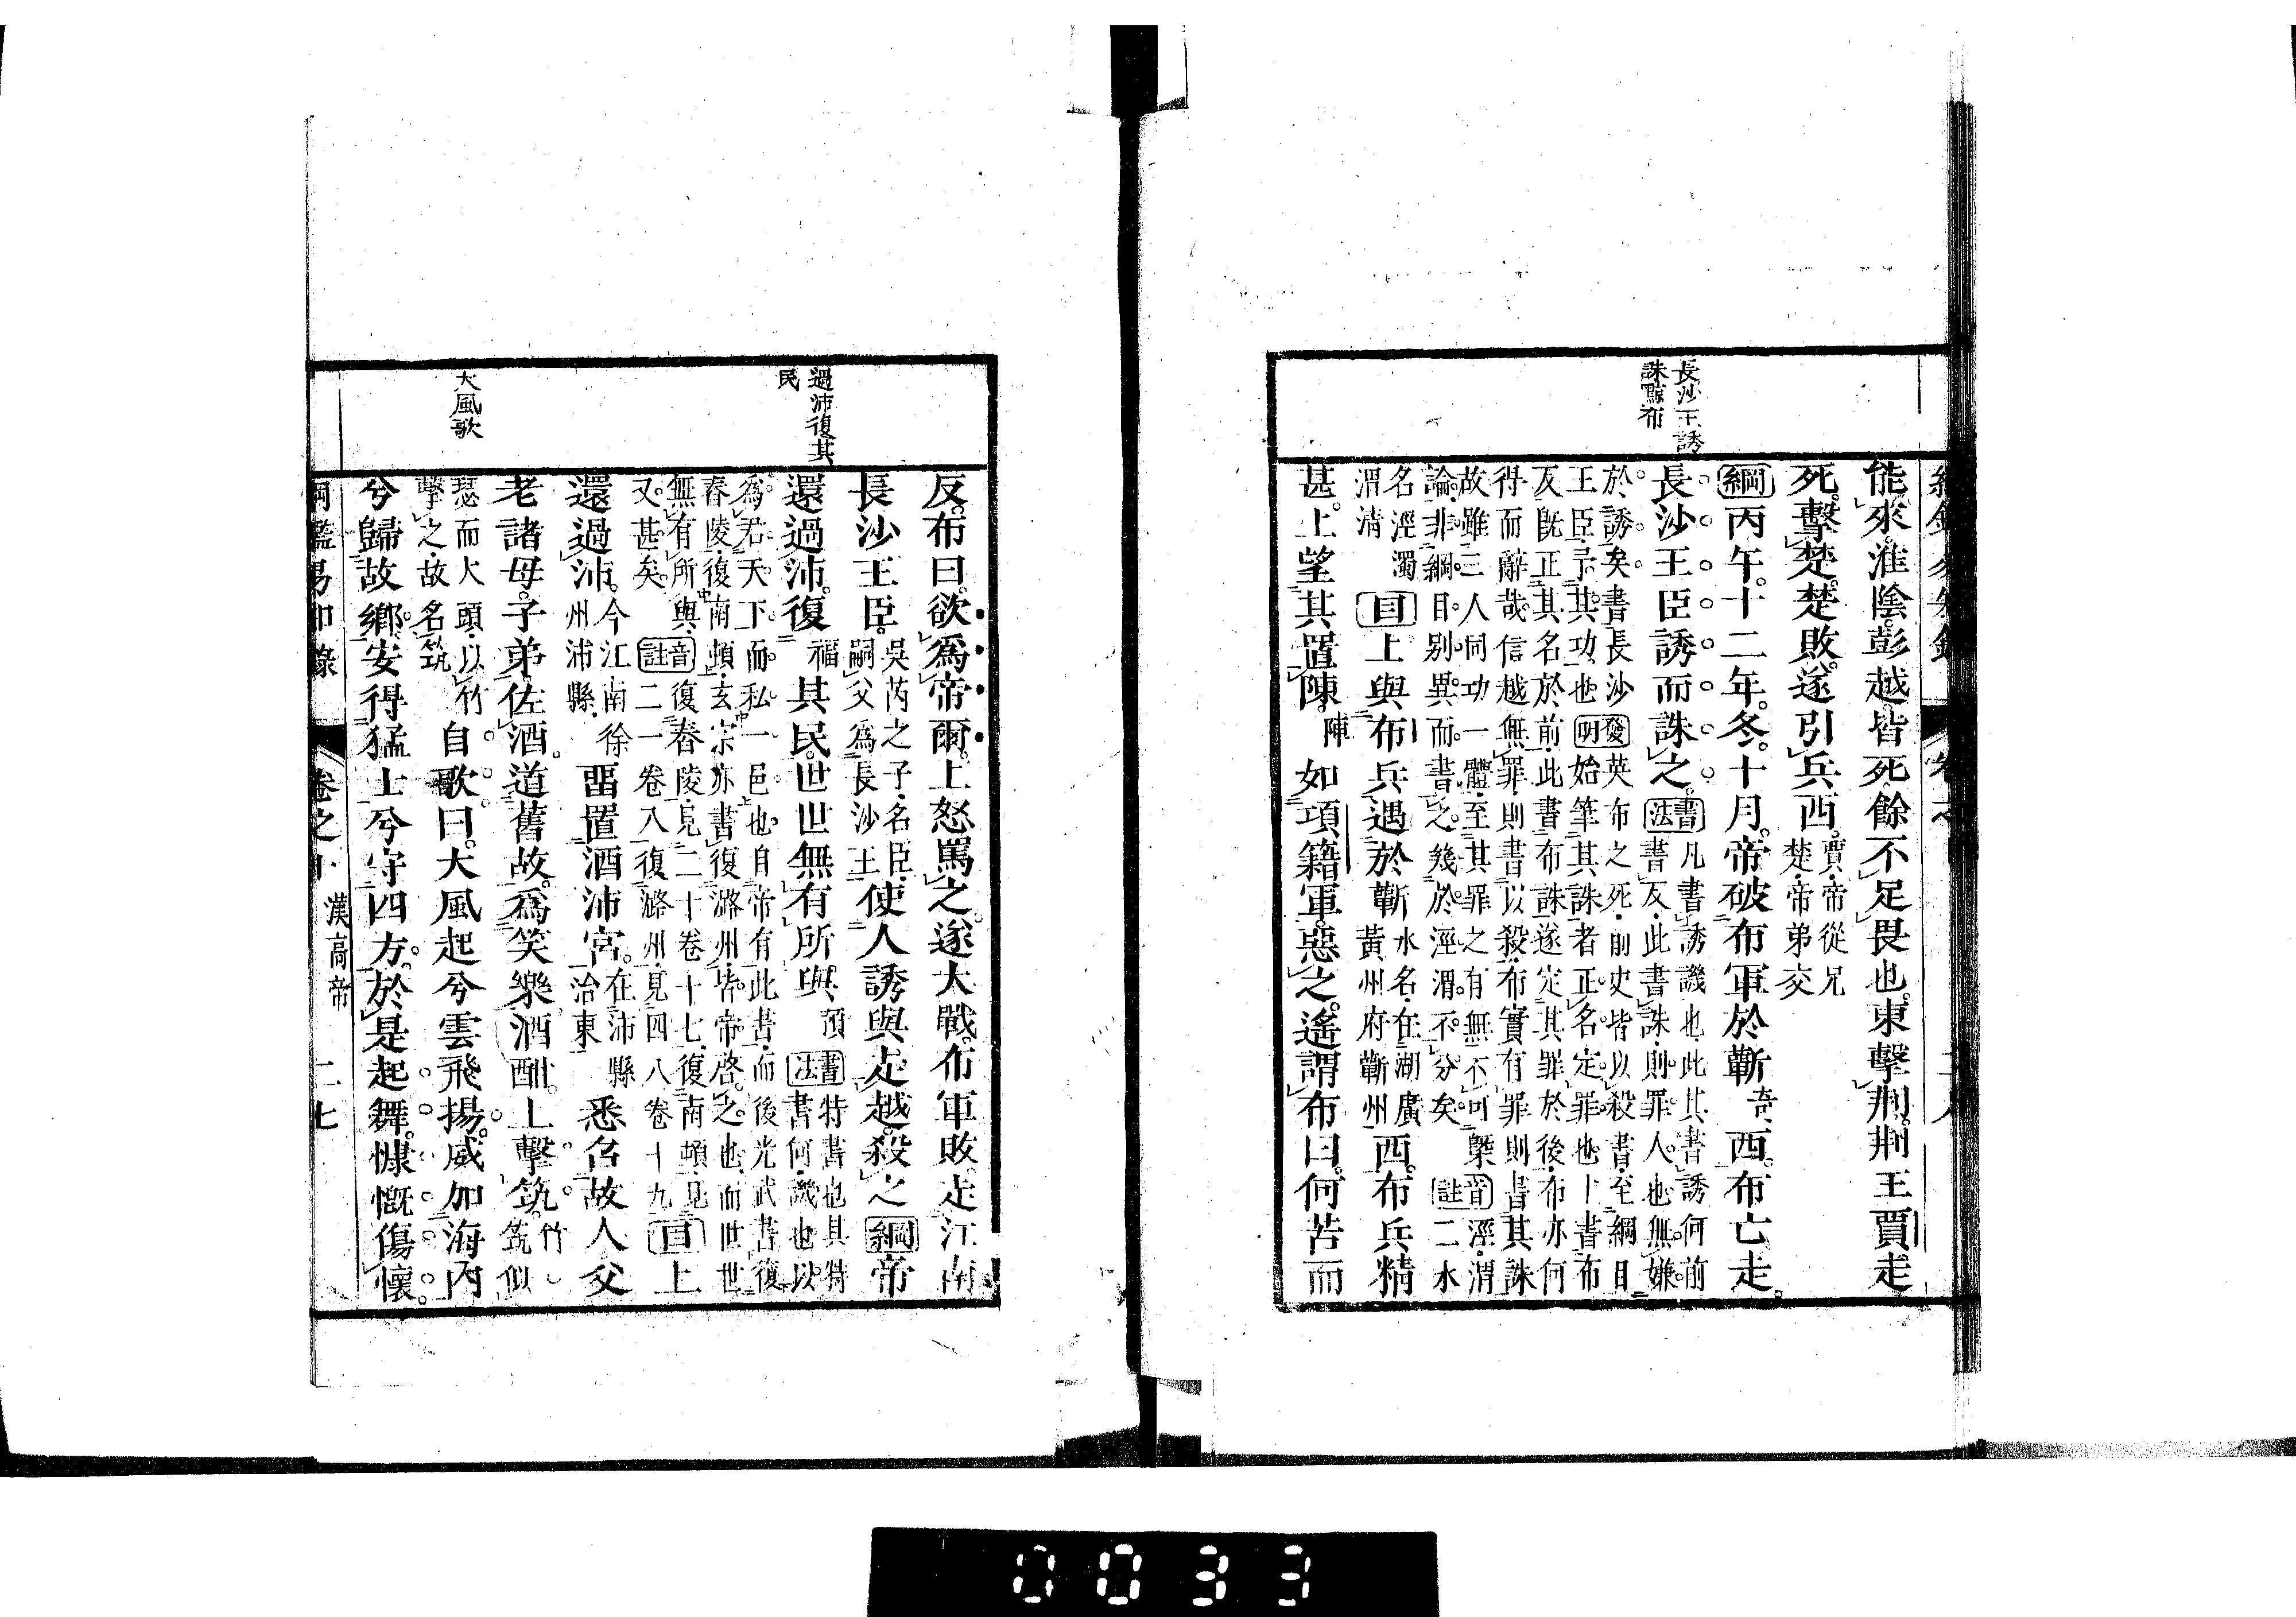 長沙王誘
誅黥布
能來。淮陰彭越皆死。餘不足畏也。東擊荆。荆王賈走
死。擊楚。楚敗。遂引兵西。賈帝從兄
楚帝弟交
綱丙午。十二年。冬。十月。帝破布軍於蘄音奇西。布亡走。
長沙王臣誘而誅之。書法凡書誘譏也此其書誘何前
書反此書誅則罪人也無嫌
於誘矣書長沙發英布之死前史皆以殺書至綱目
王臣予其功也明始筆其誅者正名定罪也上書布
反既正其名於前此書布誅遂定其罪於後布亦何
得而辭哉信越無罪則書以殺布實有罪則書其誅
故雖三人同功一體至其罪之有無不可槩音涇渭
論非綱目别異而書之幾於涇渭不分矣註二水
名涇濁
渭清目上與布兵遇於蘄水名在湖廣
黄州府蘄州西。布兵精
甚。上望其置陳。陣如項籍軍。惡之。遙謂布曰。何苦而
過沛復其
民
大風歌
反。布曰。欲爲帝爾。上怒罵之。遂大戰。布軍敗。走江南
長沙王臣。吳芮之子名臣
嗣父爲長沙王使人誘與走越。殺之綱帝
還過沛。復福其民。世世無有所與。預書法特書也其特
書何譏也以
爲君天下而私一邑也自帝有此書而後光武書復
舂陵復南頓玄宗亦書復潞州皆帝啓之也而世世
無有所與音復舂陵見二十卷十七復南頓見
又甚矣註二一卷八復潞州見四八卷十九目上
還過沛。今江南徐
州沛縣畱置酒沛宮。在沛縣
治東悉召故人父
老諸母。子弟佐酒。道舊故。爲笑樂。酒酣。上擊筑。竹
筑似
瑟而大頭以竹
擊之故名筑自歌曰。大風起兮雲飛揚。威加海內
兮歸故鄉。安得猛士兮守四方。於是起舞。慷慨傷懷。
綱鑑易知錄 卷之十 漢高帝 二七